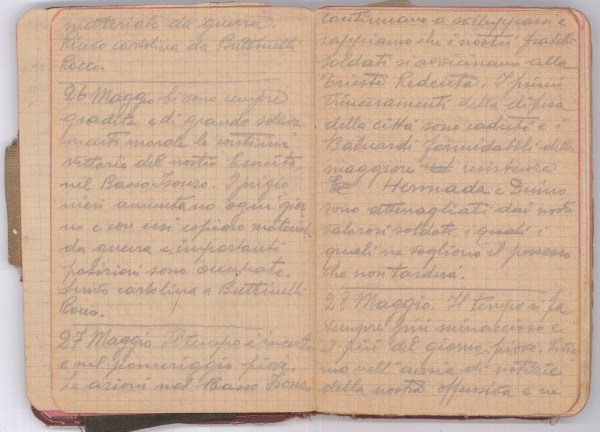 materiale da guerra.
Ricevo cartolina da Buttinelli
Rocco.
26 Maggio Ci sono sempre
gradite e di grande solleva
mento morale le continue
vittorie del nostro Esercito,
nel Basso Isonzo. I prigio
nieri aumentano ogni gior
no e con essi copioso materiale
da guerra e importanti
posizioni sono occupate.
Invio cartolina a Buttinelli
Rocco.
27 Maggio Il tempo è incerto
e nel pomeriggio piove.
Le azioni nel Basso Isonzo
continuano a svilupparsi e
sappiamo che i nostri fratelli
soldati si avvicinano alla
Trieste Redenta. I primi
trinceramenti della difesa
della città sono caduti e i
Baluardi formidabili della
maggiore resistenza
Hermada e Duino
sono attenagliati dai nostri
valorosi soldati, i quali i
quali ne vogliono il possesso
che non tarderà.
28 Maggio. Il tempo si fa
sempre più minaccioso e
il più del giorno piove. Siamo
nell'ansia di notizie
della nostra offensiva e ne